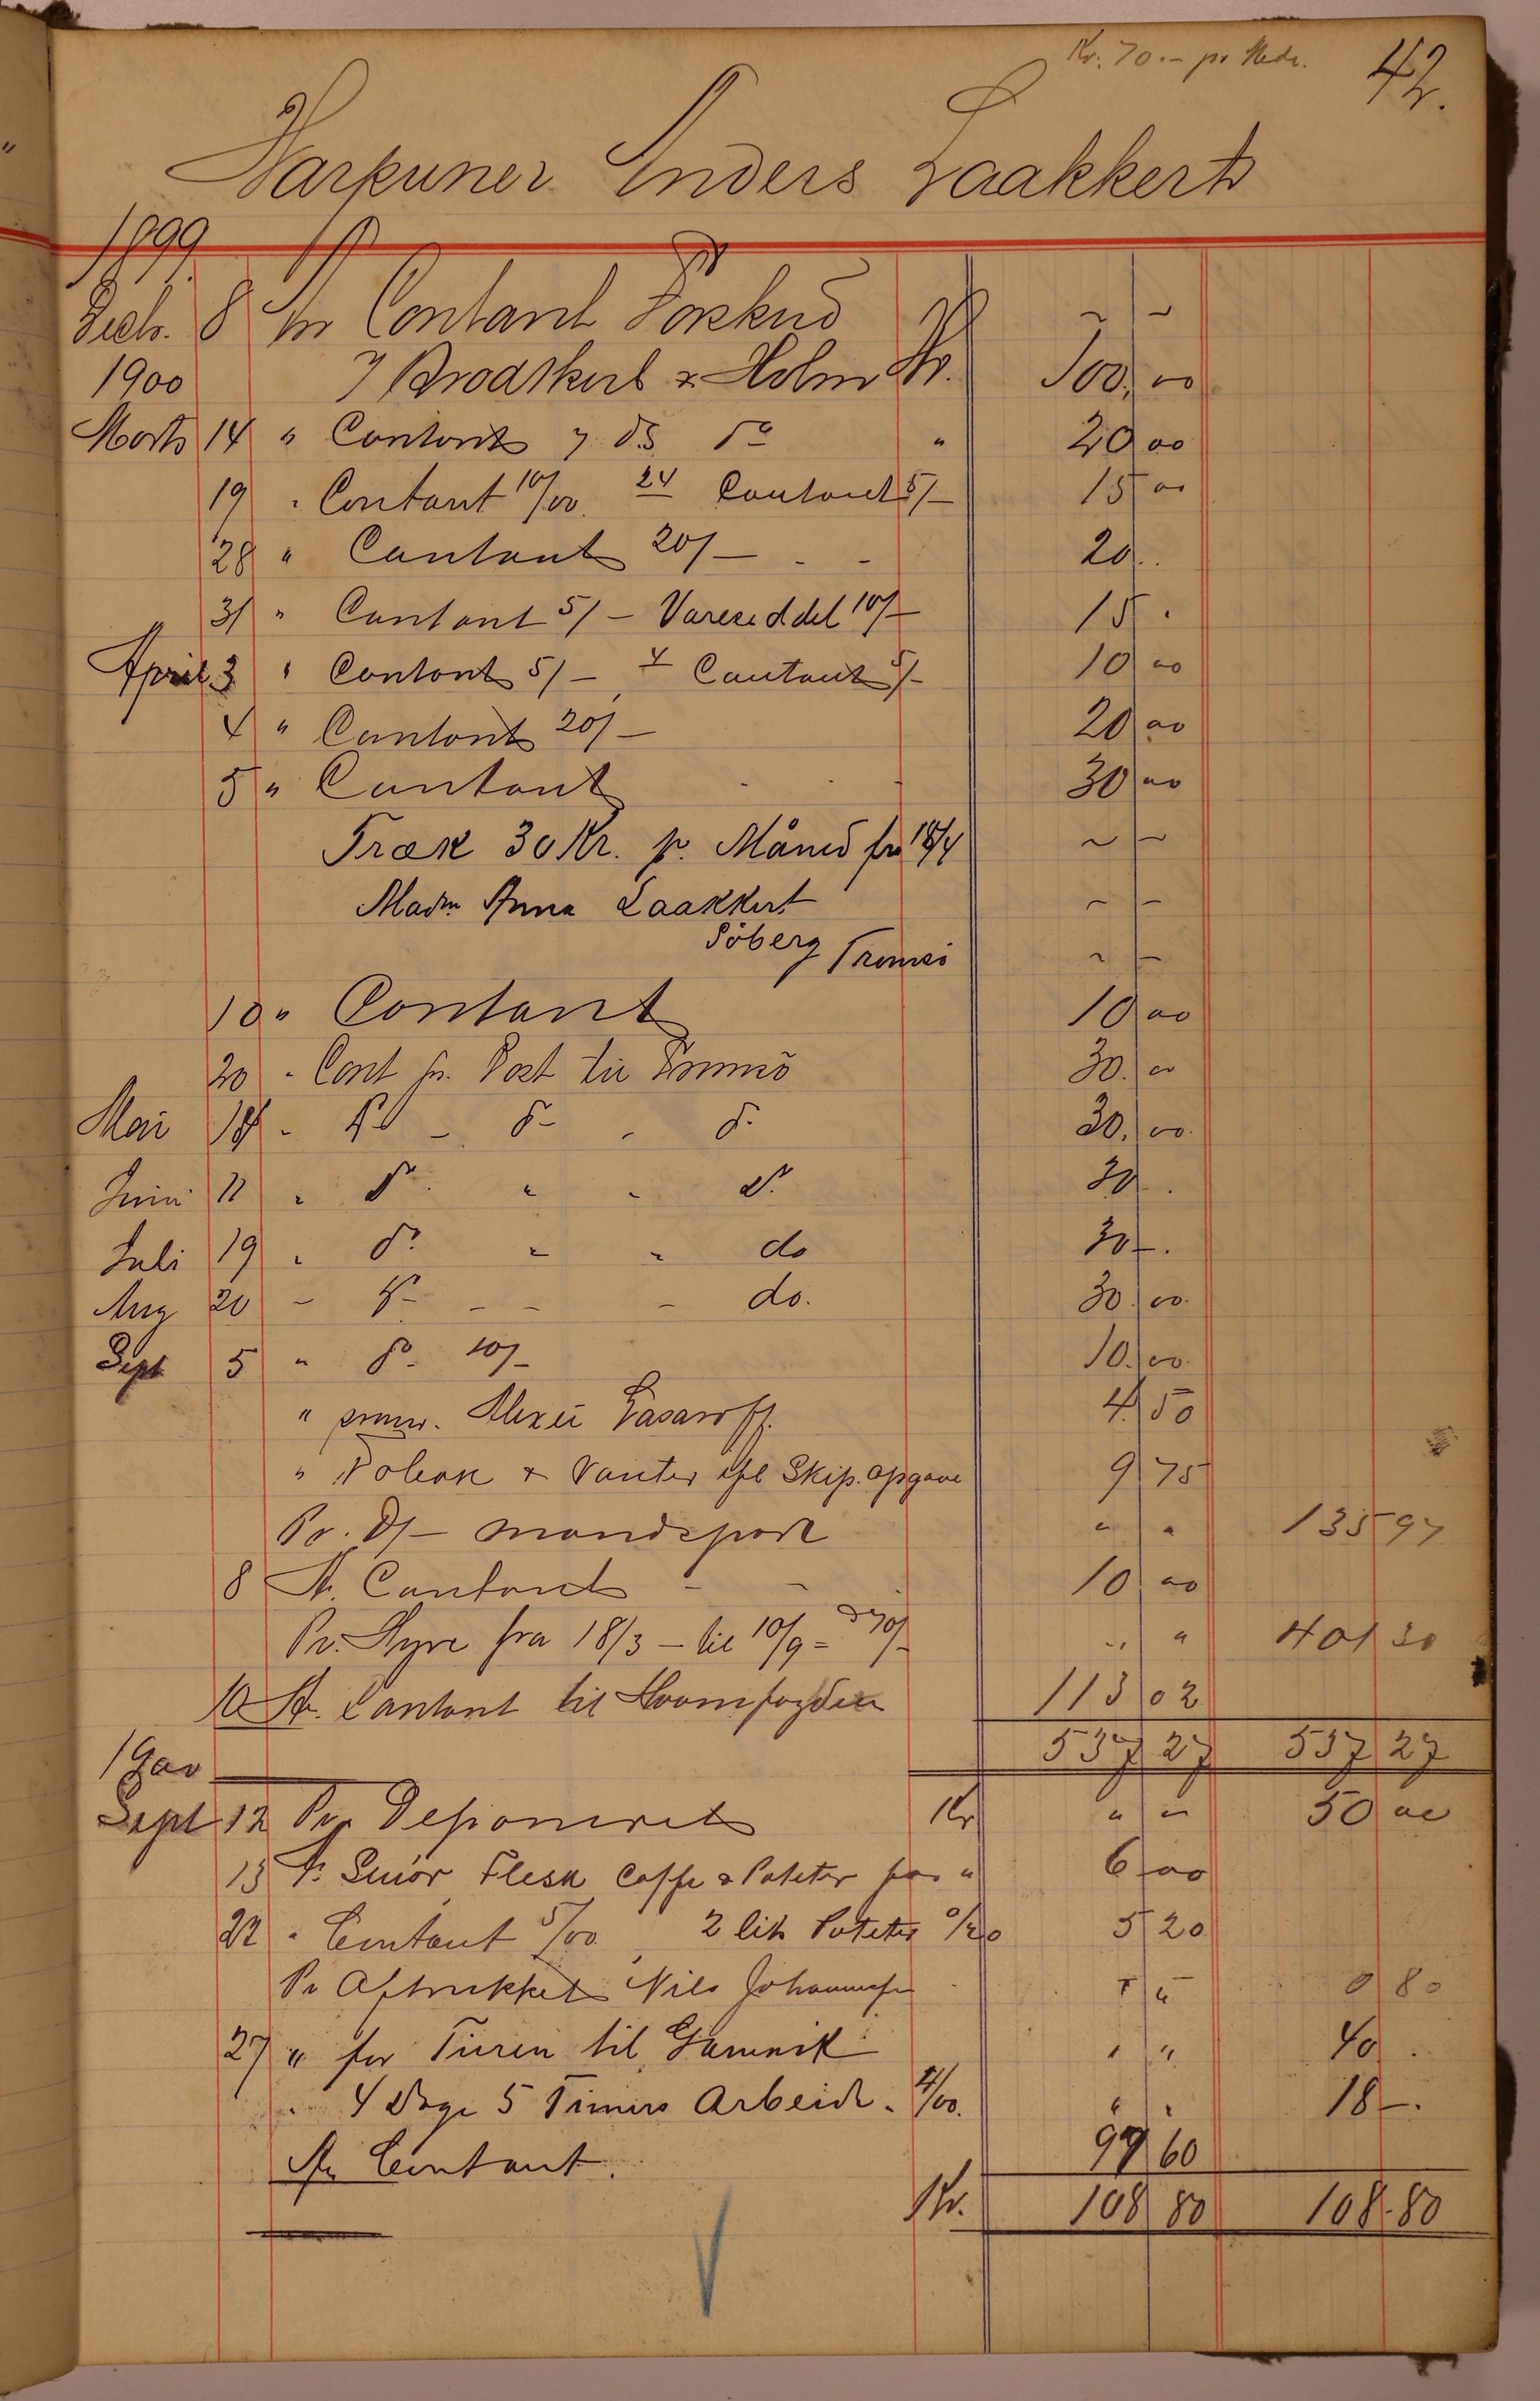 Kr. 70.- pr Mdr.
42.
Harpuner Anders Laakkert
1899
Decbr. 8 An Contant Forskud
1900 Brodtkorb & Holm Kr. 100,00
Marts 14 " Contant " 20 00
19 " Contant 10/00. 24 Contant 5/- 15 00
28 " Contant 20/- 20 . .
31 " Contant 5/- Vareseddel 10/- 15 .
April 3 " Contant 5/- 4 Contant 5/- 10 00
4 " Contant 20/- 20 00
5 " Contant 30 00
Træk 30 Kr. p. Måned fra 18/4
Madm Anna Laakkert
Söberg Tromsö
10 " Contant 10 00
20 " Cont pr. Post til Tromsö 30.00
Mai 18 - do - do - do 30,00.
Juni 11 " do " " do 30 .
Juli 19 " do " " do 30 -.
Aug 20 - do - - - do. 30.00.
Sept 5 " do. 10/- 10.00
" Alexei Lasaroff. 4.50
" Tobak & Vanter Skip. opgave 9 75
Pr. D/- Mandspart " " 135 97
8 An Contant - - 10 00
Pr. Hyre fra 18/3 - til 10/9 = 70/- " " 401 30
10 An Contant til 113 02
537 27 537 27
1900
Sept 12 Pr Deponeret Kr " " 50 00
13 An Smör, Flesk Caffe & Poteter " 6 00
22 " Contant 5/00, 2 lit Poteter 0/20 5 20
Pr Aftrukket Nils Johannesen " " 0 80
27 " for Turen til Gamvik " " 40 .
4 Dage 5 Timers Arbeide 4/00. " " 18 -.
An Contant. 97 60
Kr. 108 80 108.80